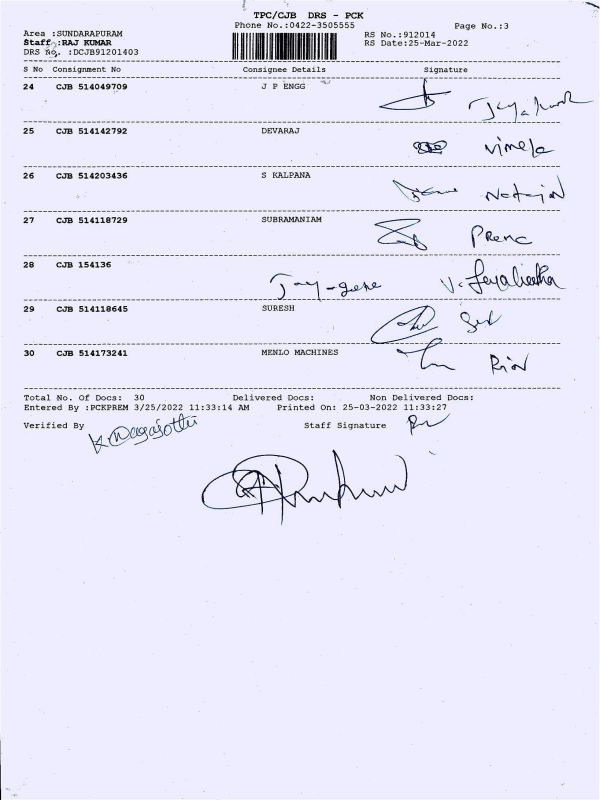 TPC/CJB DRS - PCK
Phone No.:0422-3505555 Page No.:3
Area :SUNDARAPURAM RS No.:912014
Staff :RAJ KUMAR RS Date:25-Mar-2022
DRS No. :DCJB91201403
S No Consignment No Consignee Details Signature
24 CJB 514049709 J P ENGG
25 CJB 514142792 DEVARAJ Vimela
26 CJB 514203436 S KALPANA
27 CJB 514118729 SUBRAMANIAM
28 CJB 154136
29 CJB 514118645 SURESH
30 CJB 514173241 MENLO MACHINES
Total No. Of Docs: 30 Delivered Docs: Non Delivered Docs:
Entered By :PCKPREM 3/25/2022 11:33:14 AM Printed On: 25-03-2022 11:33:27
Verified By Staff Signature